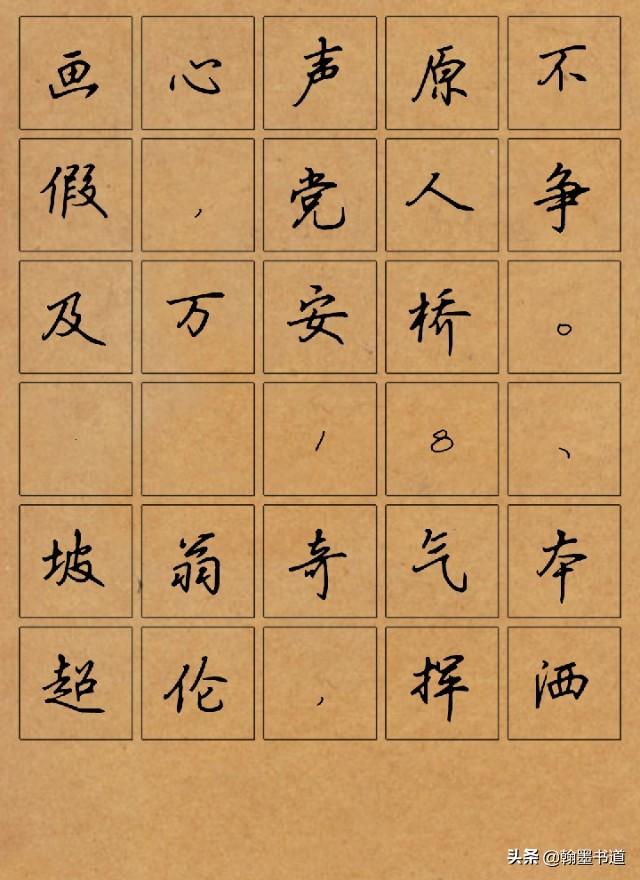 画心声原不
假，党人争
及万安桥。
18、
坡翁奇气本
超伦，挥洒
头条 @翰墨书道